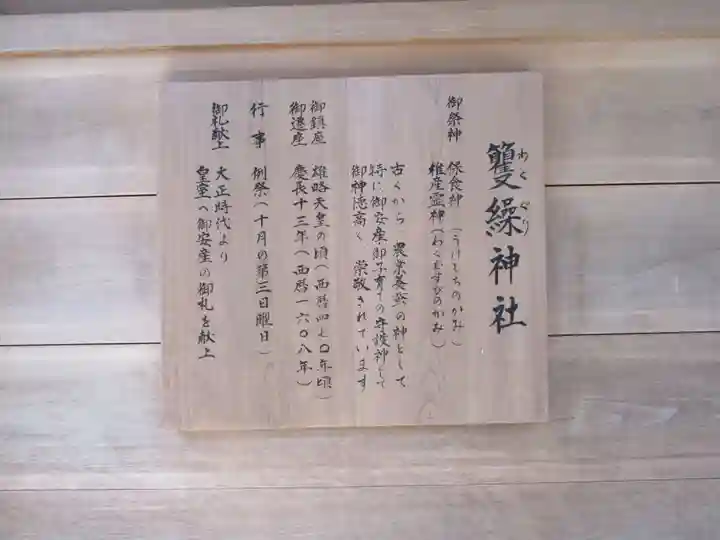 籰繰神社
わくぐり
御祭神 保食神(うけもちのかみ)
稚産霊神(わくむすびのかみ)
古くから 農業養蚕の神として
特に御安産御子育ての守護神として
御神徳高く 崇敬されています
御鎮座 雄略天皇の頃(西暦四七〇年頃)
御遷座 慶長十三年(西暦一六〇八年)
行事 例祭(十月の第三日曜日)
御札献上 大正時代より
皇室へ御安産の御札を献上